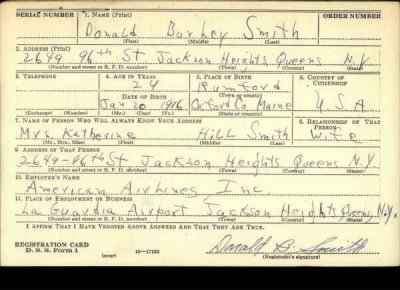 SERIAL NUMBER 1. NAME (Print) ORDER NUMBER
Donald Smith
(First) (Middle) (Last)
2. ADDRESS (Print)
2649 96th St Jackson Heights Queens N.Y.
(Number and street or R. F. D. number) (Town) (County) (State)
3. TELEPHONE 4. AGE IN YEARS 5. PLACE OF BIRTH 6. COUNTRY OF CITIZENSHIP
24 Rumford
DATE OF BIRTH (Town or county)
Jan 20 1916 Oxford Co. Maine U.S.A
(Exchange) (Number) (Mo.) (Day) (Yr.) (State or country)
7. NAME OF PERSON WHO WILL ALWAYS KNOW YOUR ADDRESS 8. RELATIONSHIP OF THAT PERSON
Mrs. Katherine Hill Smith Wife
(Mr., Mrs., Miss) (First) (Middle) (Last)
9. ADDRESS OF THAT PERSON
2649-96th St Jackson Heights Queens N.Y.
(Number and street or R. F. D. number) (Town) (County) (State)
10. EMPLOYER'S NAME
American Airlines Inc
11. PLACE OF EMPLOYMENT OR BUSINESS
La Guardia Airport Jackson Heights Queens, N.Y.
(Number and street or R. F. D. number) (Town) (County) (State)
I AFFIRM THAT I HAVE VERIFIED ABOVE ANSWERS AND THAT THEY ARE TRUE.
REGISTRATION CARD
D. S. S. Form 1 (over) 16—17105 Donald B. Smith
(Registrant's signature)